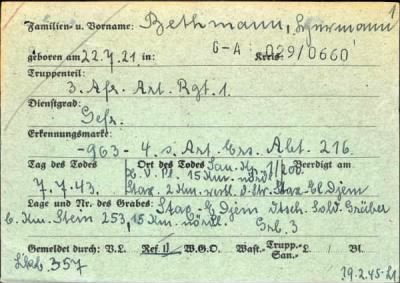 1
Familien- u. Vorname: Bethmann, Hermann
G-A 029/0660
geboren am 22.7.21 in: Kreis:
Truppenteil:
3. Afr. Art. Rgt. 1.
Dienstgrad:
Gefr.
Erkennungsmarke:
-963- 4. s. Art. Ers. Abt. 216.
Tag des Todes Ort des Todes San. Kp. 1/200. Beerdigt am
H. V. Pl. 15 Km. nördl.
7.7.43. Stax. 2 Km. westl. d. Str. Stax-El Djem
Lage und Nr. des Grabes: Stax-El Djem, Dtsch. Sold. Gräber
b. Km. Stein 253, 15 Km. nördl. Grb. 3
Gemeldet durch: V.L. Ref. II W.G.O. Wast.- Trupp.- San.- L. / Bl.
357
19.2.45